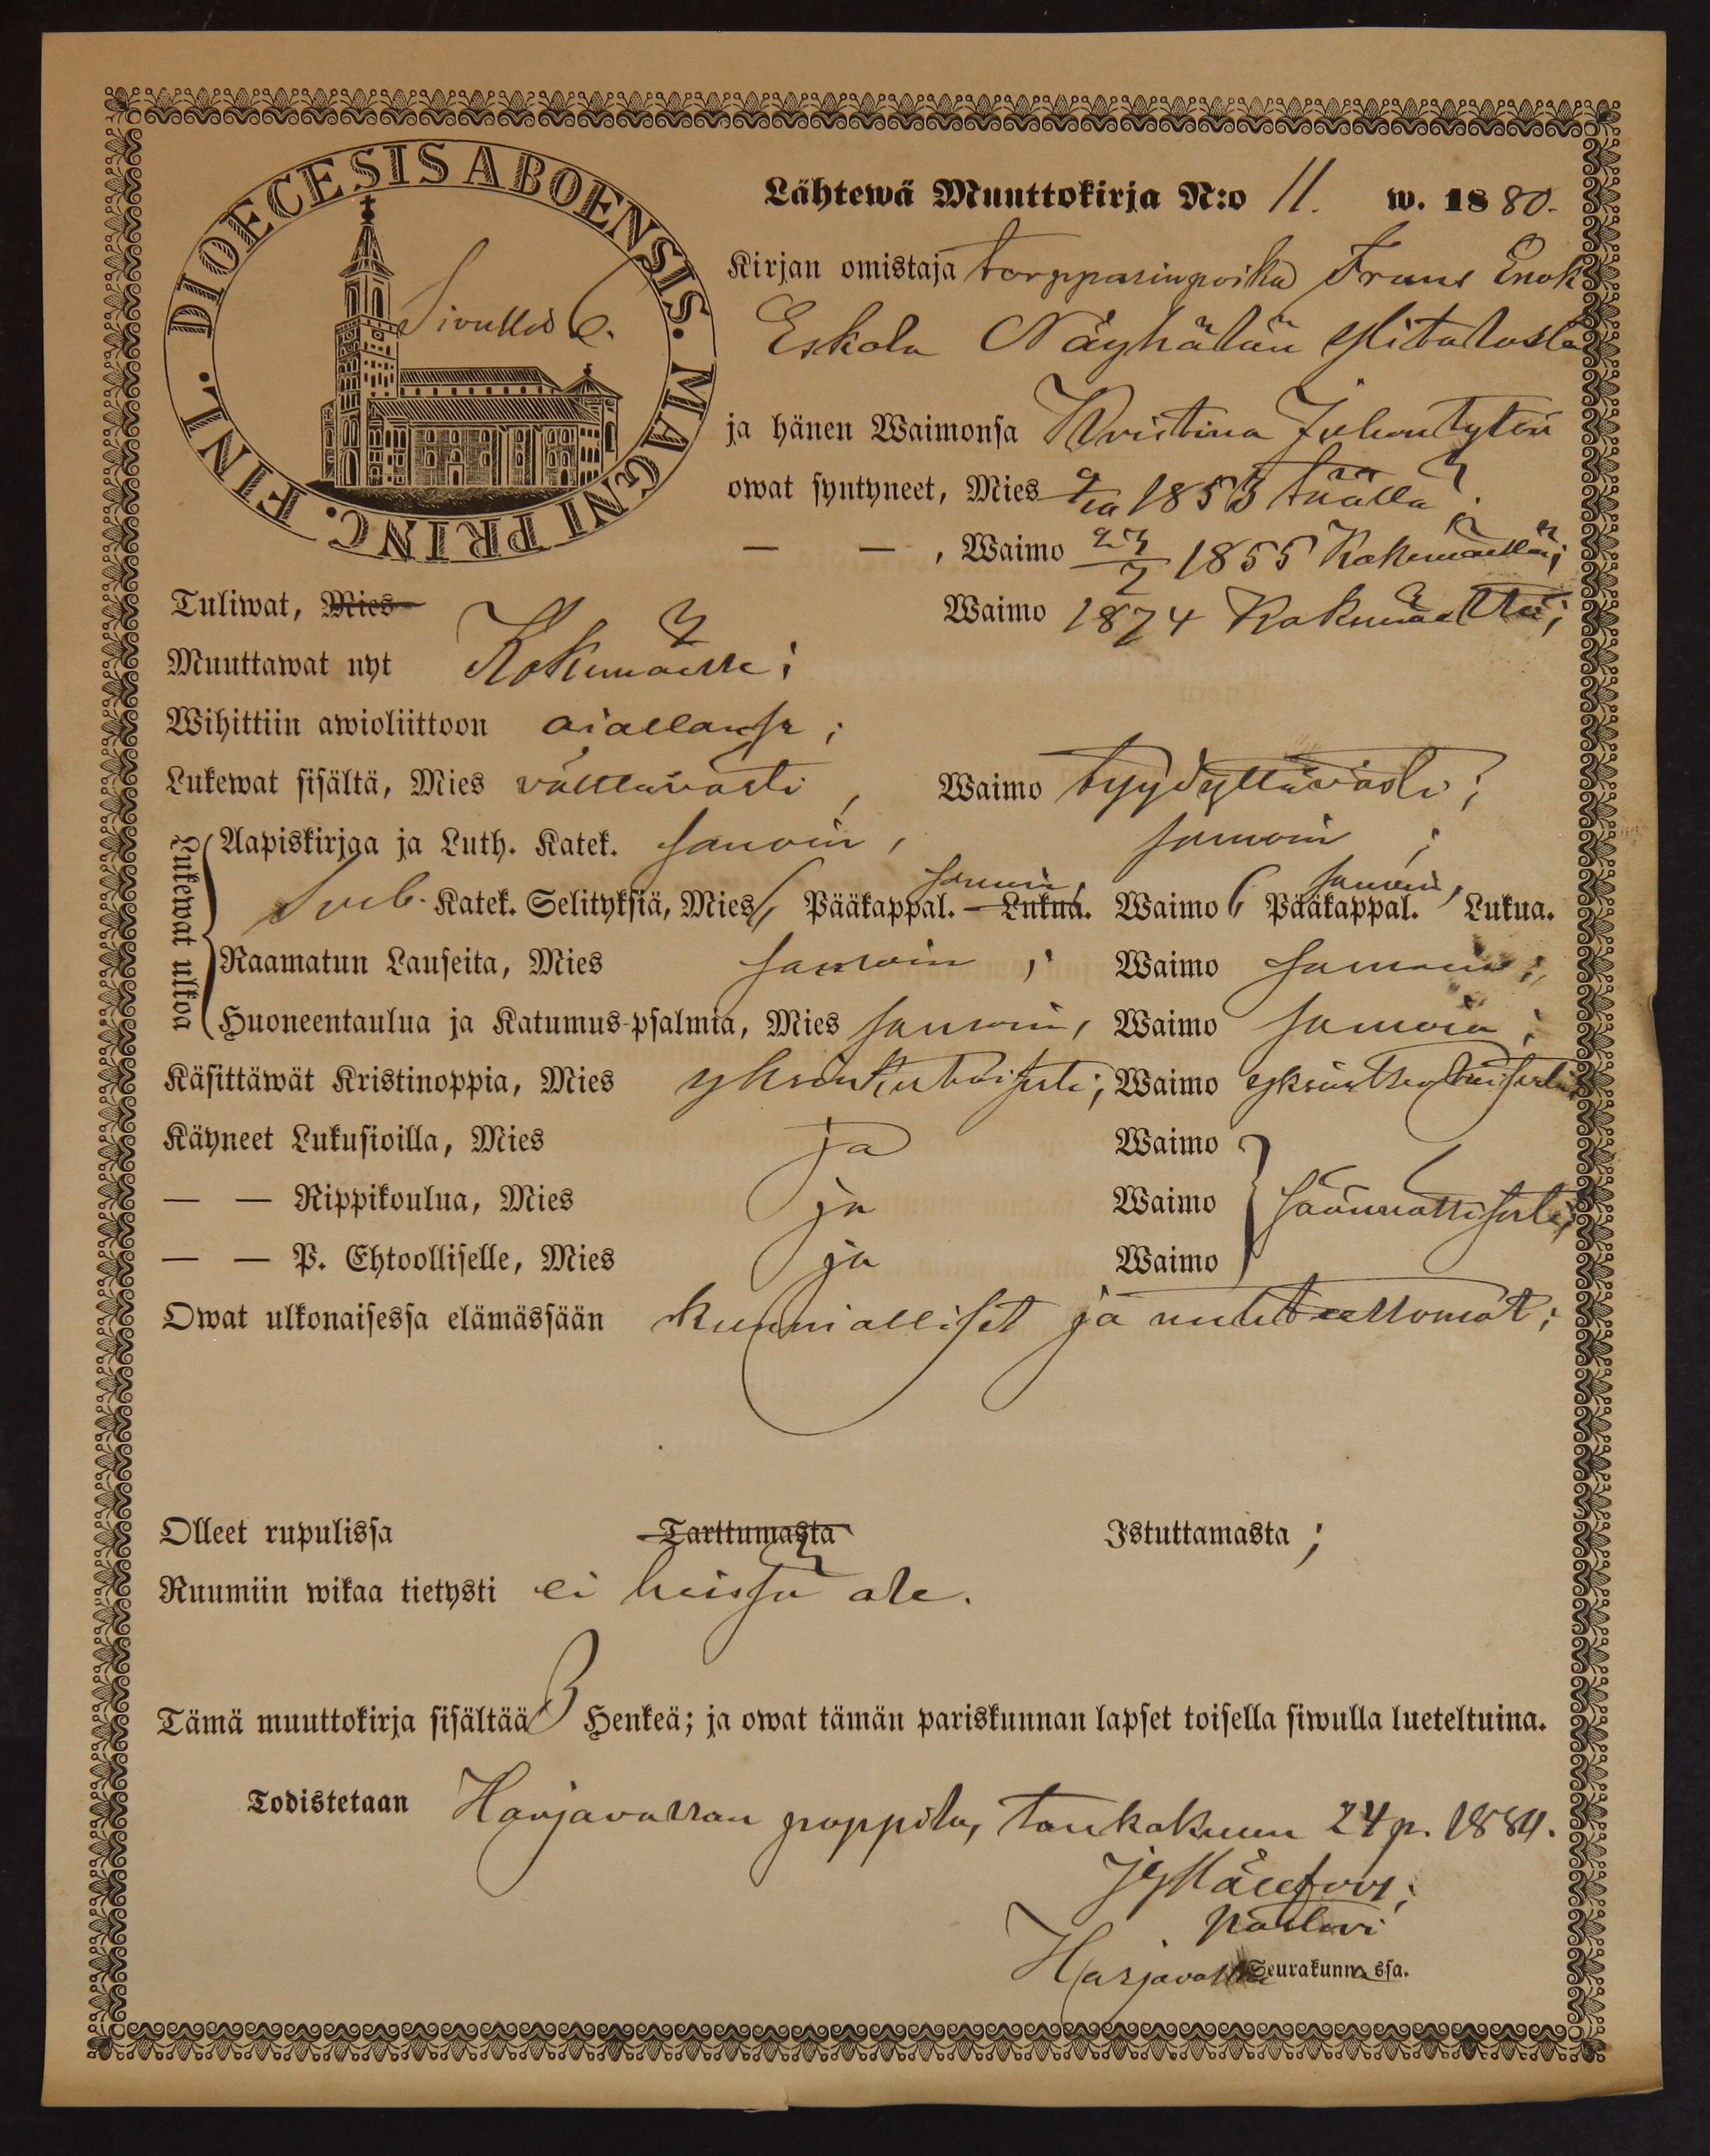 DIOECESIS ABOENSIS. MAGNI PRINC. FINL.
Lähtewä Muuttokirja N:o 11. w. 1880.
Kirjan omistaja torpparinpoika Frans Enok
Eskola Näyhälän Ylitalosta
ja hänen Waimonsa Kristina Juhontytär
owat syntyneet, Mies 9/10 1853 täällä;
— — , Waimo 23/7 1855 Kokemäellä;
Tuliwat, Mies Waimo 1874 Kokemäeltä;
Muuttawat nyt Kokemäelle;
Wihittiin awioliittoon aiallansa;
Lukewat sisältä, Mies välttävästi, Waimo tyydyttävästi;
Lukewat ulkoa
Aapiskirjaa ja Luth. Katek. samoin, samoin;
Sveb. Katek. Selityksiä, Mies 6 Pääkappal. samoin, Lukua. Waimo 6 Pääkappal. samoin, Lukua.
Raamatun Lauseita, Mies samoin, Waimo samoin;
Huoneentaulua ja Katumus-psalmia, Mies samoin, Waimo samoin;
Käsittäwät Kristinoppia, Mies yksinkertaisesti; Waimo yksinkertaisesti;
Käyneet Lukusioilla, Mies ja Waimo
— — Rippikoulua, Mies ja Waimo säännöllisesti;
— — P. Ehtoolliselle, Mies ja Waimo
Owat ulkonaisessa elämässään kunnialliset ja nuhteettomat;
Olleet rupulissa Tarttumasta Istuttamasta;
Ruumiin wikaa tietysti ei heissä ole.
Tämä muuttokirja sisältää 3 Henkeä; ja owat tämän pariskunnan lapset toisella siwulla lueteltuina.
Todistetaan Harjavallan pappila, toukokuun 24 p. 1880.
pastori
Harjavallan Seurakunnassa.